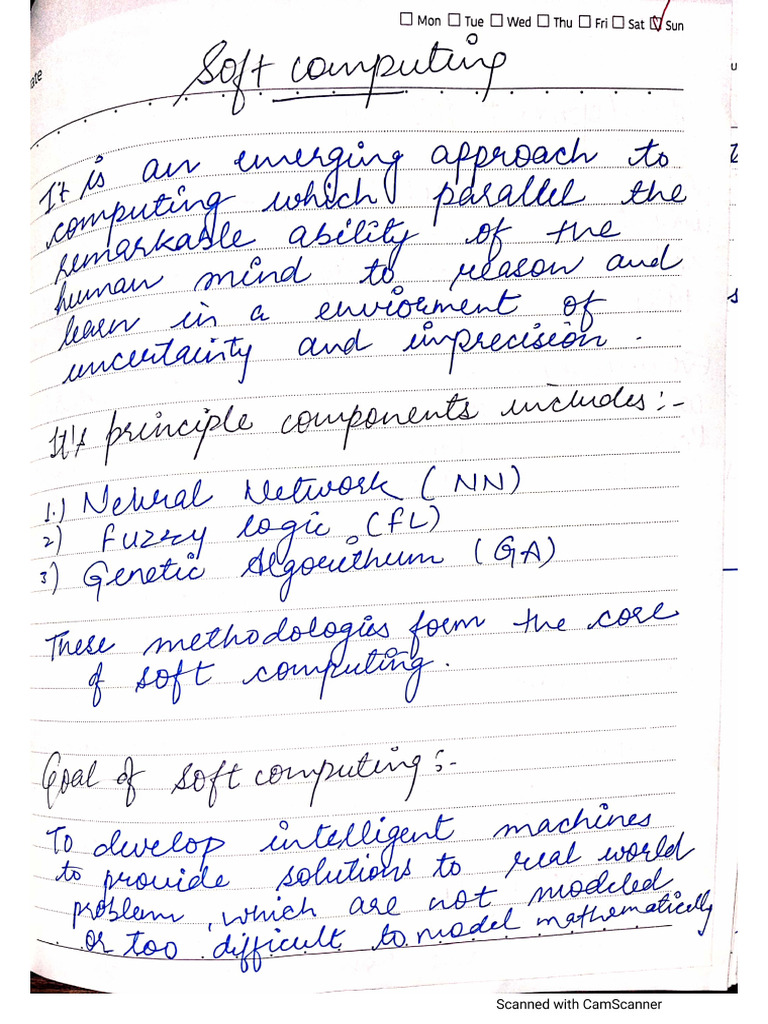 ☐ Mon ☐ Tue ☐ Wed ☐ Thu ☐ Fri ☐ Sat ☑ Sun
ate
Soft computing
It is an emerging approach to
computing which parallel the
remarkable ability of the
human mind to reason and
learn in a enviorment of
uncertainty and imprecision.
It's principle components includes:-
1.) Nehral Network (NN)
2) Fuzzy logic (FL)
3) Genetic Algorithum (GA)
These methodologies form the core
of soft computing.
Goal of soft computing:-
To develop intelligent machines
to provide solutions to real world
problem, which are not modeled
or too difficult to model mathematically
Scanned with CamScanner